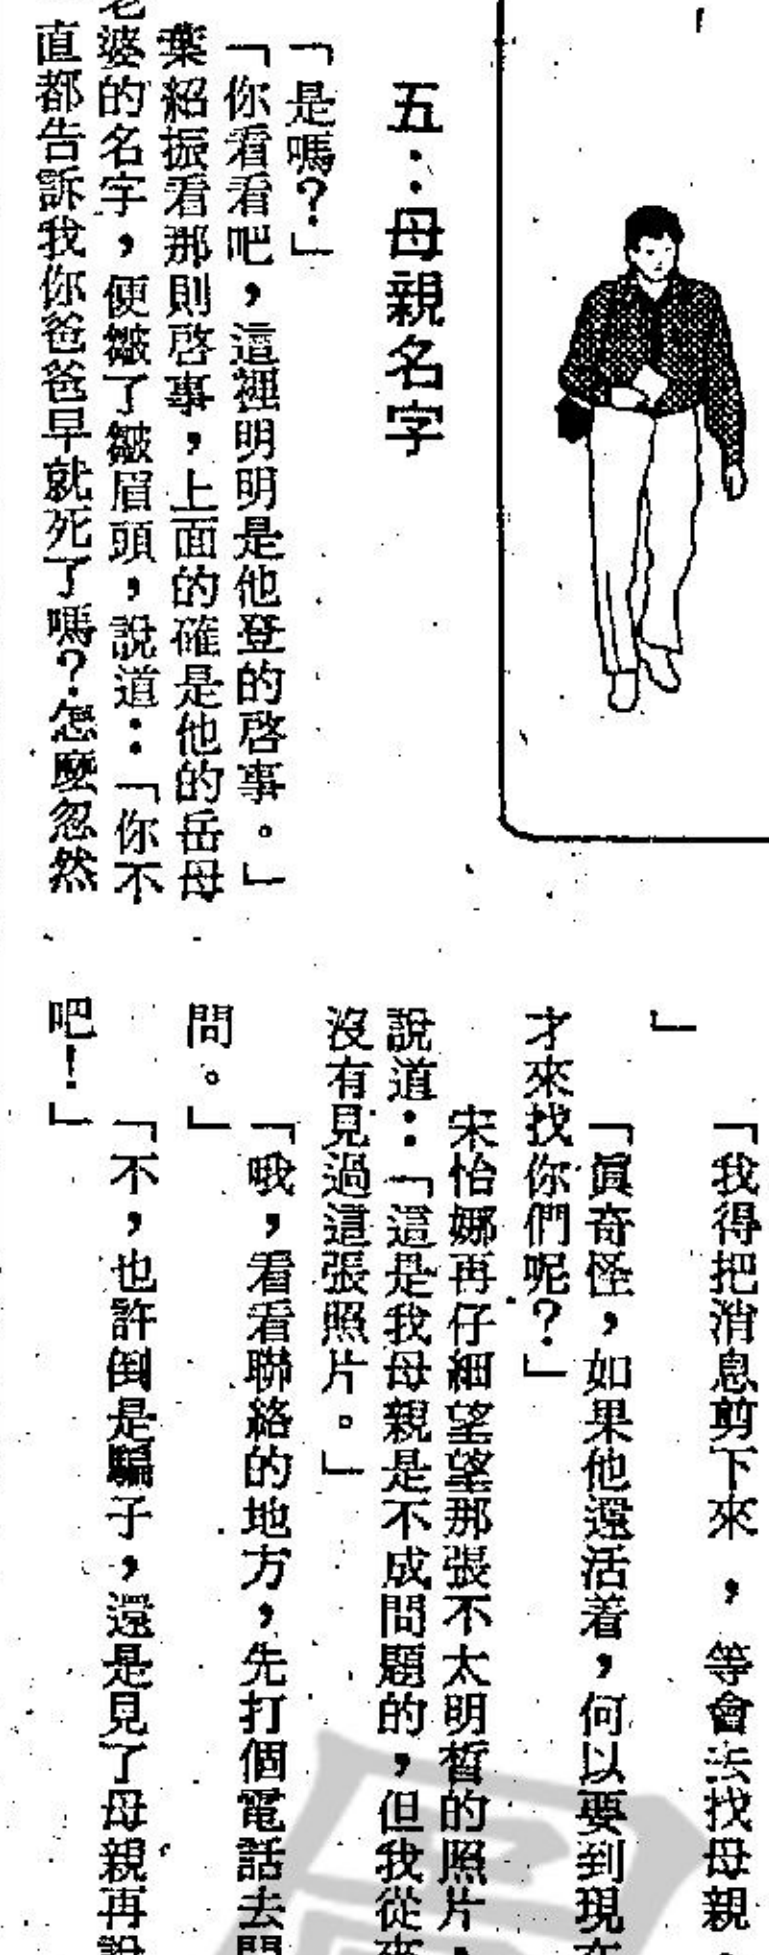 五：母親名字
「是嗎？」
「你看看吧，這裡明明是他登的啓事。」
葉紹振看那則啓事，上面的確是他的岳母
老婆的名字，便皺了皺眉頭，說道：「你不
直都告訴我你爸爸早就死了嗎？怎麼忽然
「我得把消息剪下來，等會去找母親
」
「眞奇怪，如果他還活着，何以要到現在
才來找你們呢？」
宋怡娜再仔細望望那張不太明晳的照片，
說道：「這是我母親是不成問題的，但我從來
沒有見過這張照片。」
「哦，看看聯絡的地方，先打個電話去問
問。」
「不，也許倒是騙子，還是見了母親再說
吧！」